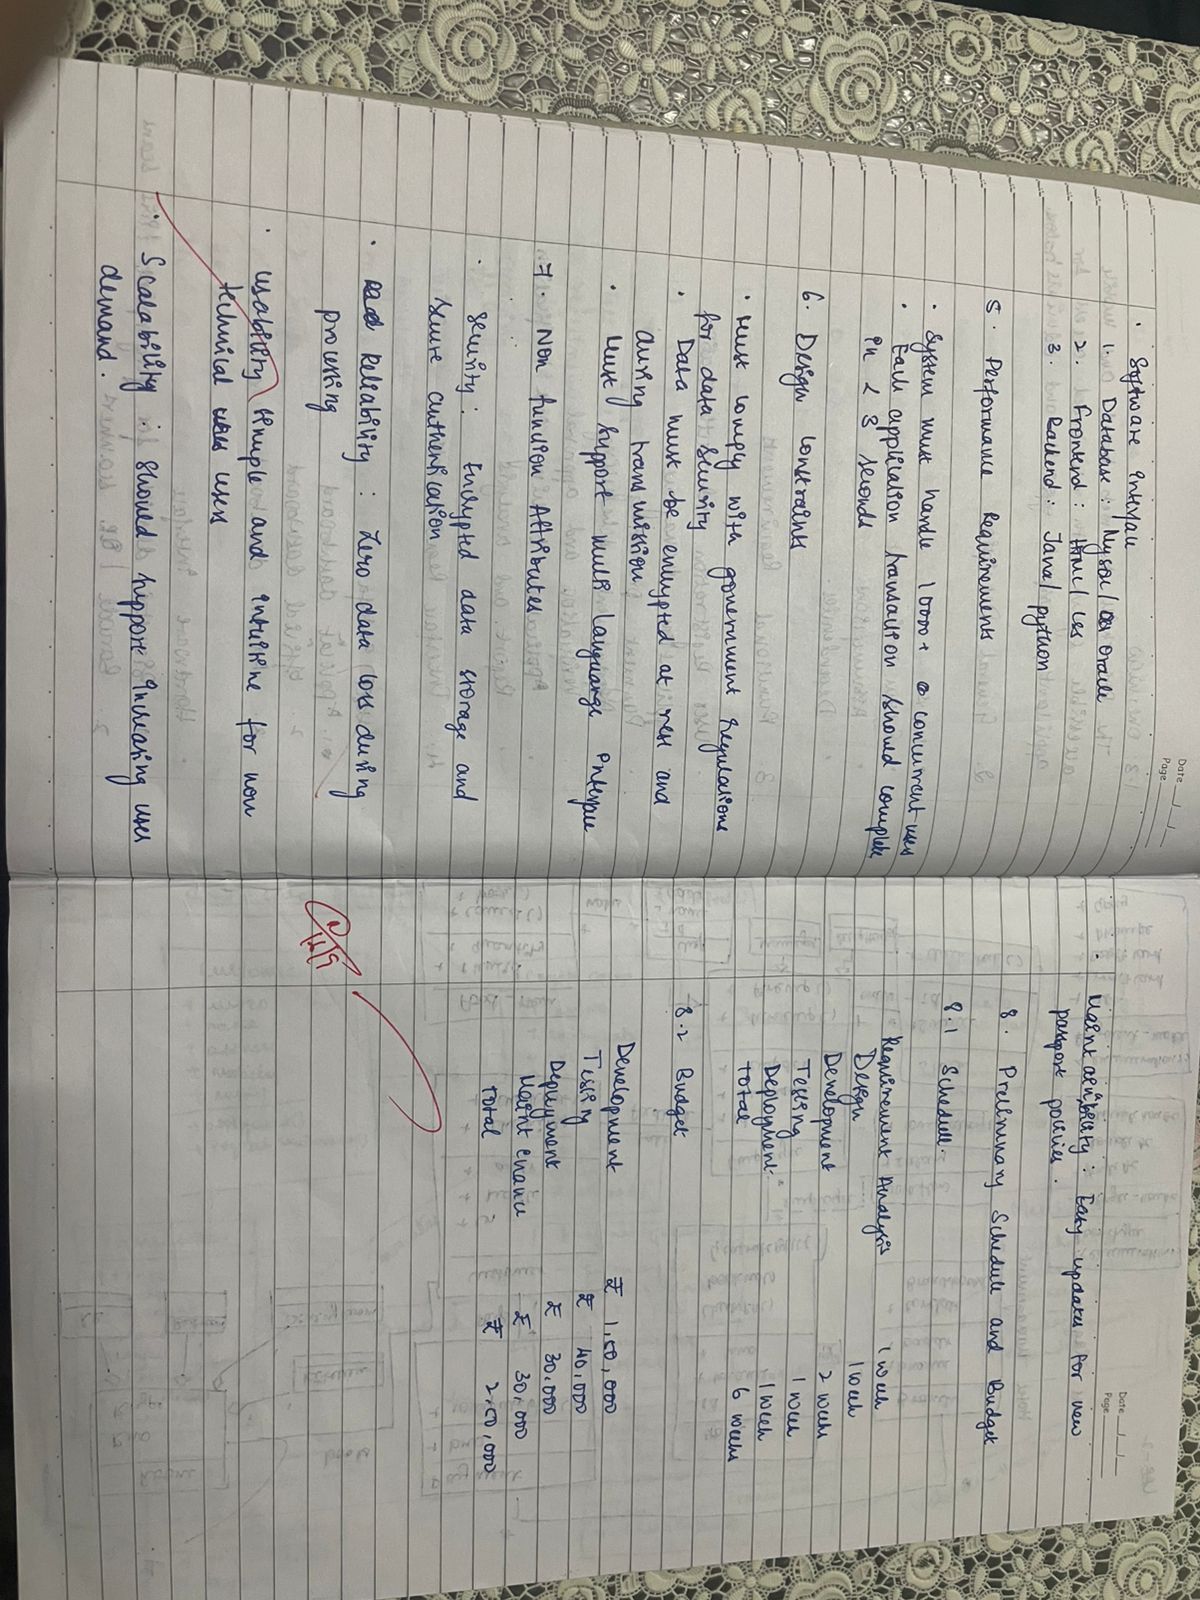 Date __/__/__
Page ____
• Software interface
1. Database : Mysql / Oracle
2. Frontend : Html / css
3. Backend : Java / python
5. Performance Requirements
• System must handle 10000+ concurrent uses
• Each application transaction should complete
in < 3 seconds
6. Design constraints
• Must comply with government Regulations
for data security
• Data must be encrypted at rest and
during transmission
• Must support multi language interface
7. Non function Attributes
• Security : Encrypted data storage and
secure authentication
• Reliability : Zero data loss during
processing
• usability simple and intuitive for non
technical uses
• Scalability : should support increasing user
demand.
Date __/__/__
Page ____
• Maintainability : Easy updates for new
passport policies.
8. Preliminary Schedule and Budget
8.1 Schedule.
Requirement Analysis 1 week
Design 1 week
Development 2 week
Testing 1 week
Deployment 1 week
total 6 weeks
8.2 Budget
Development ₹ 1,50,000
Testing ₹ 40,000
Deployment ₹ 30,000
Maintenance ₹ 30,000
total ₹ 2,50,000